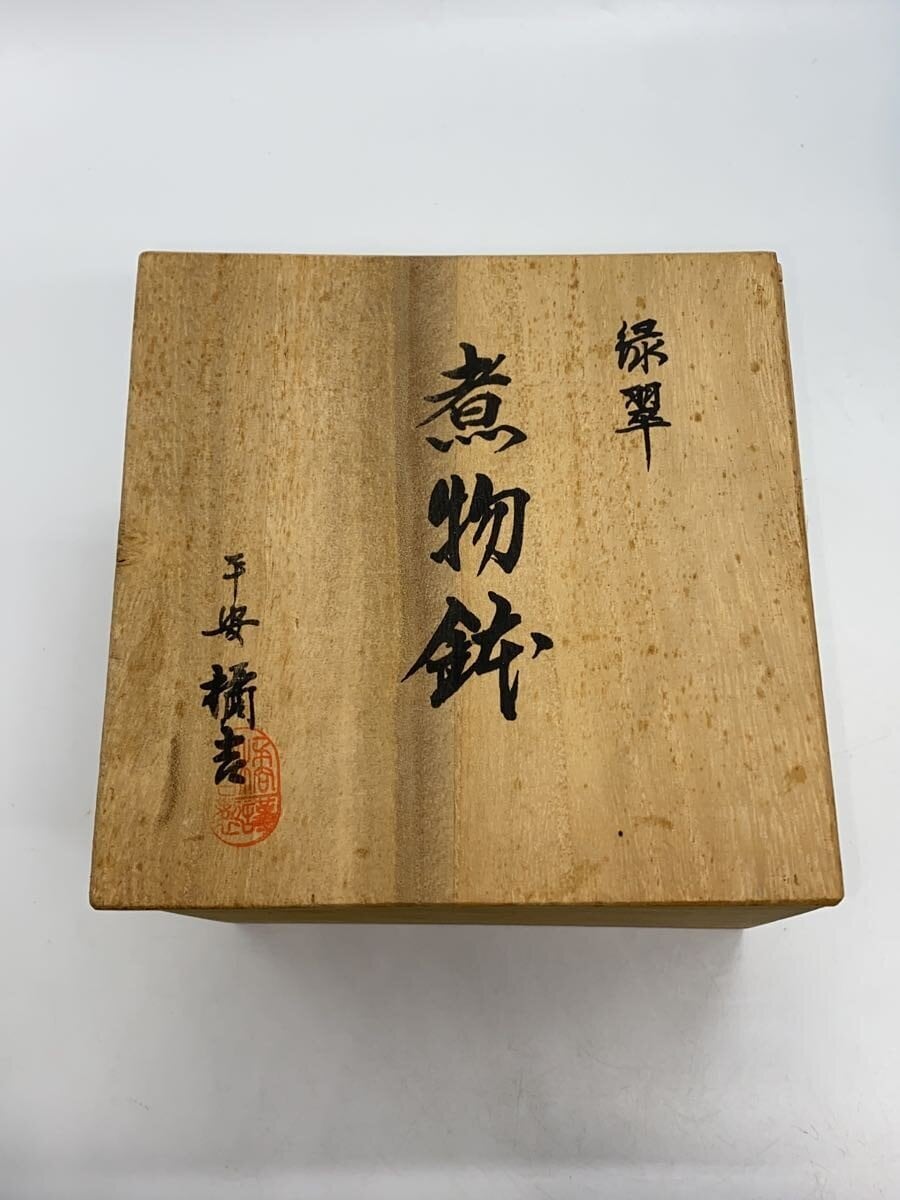 緑翠
煮物鉢
平安 橘吉